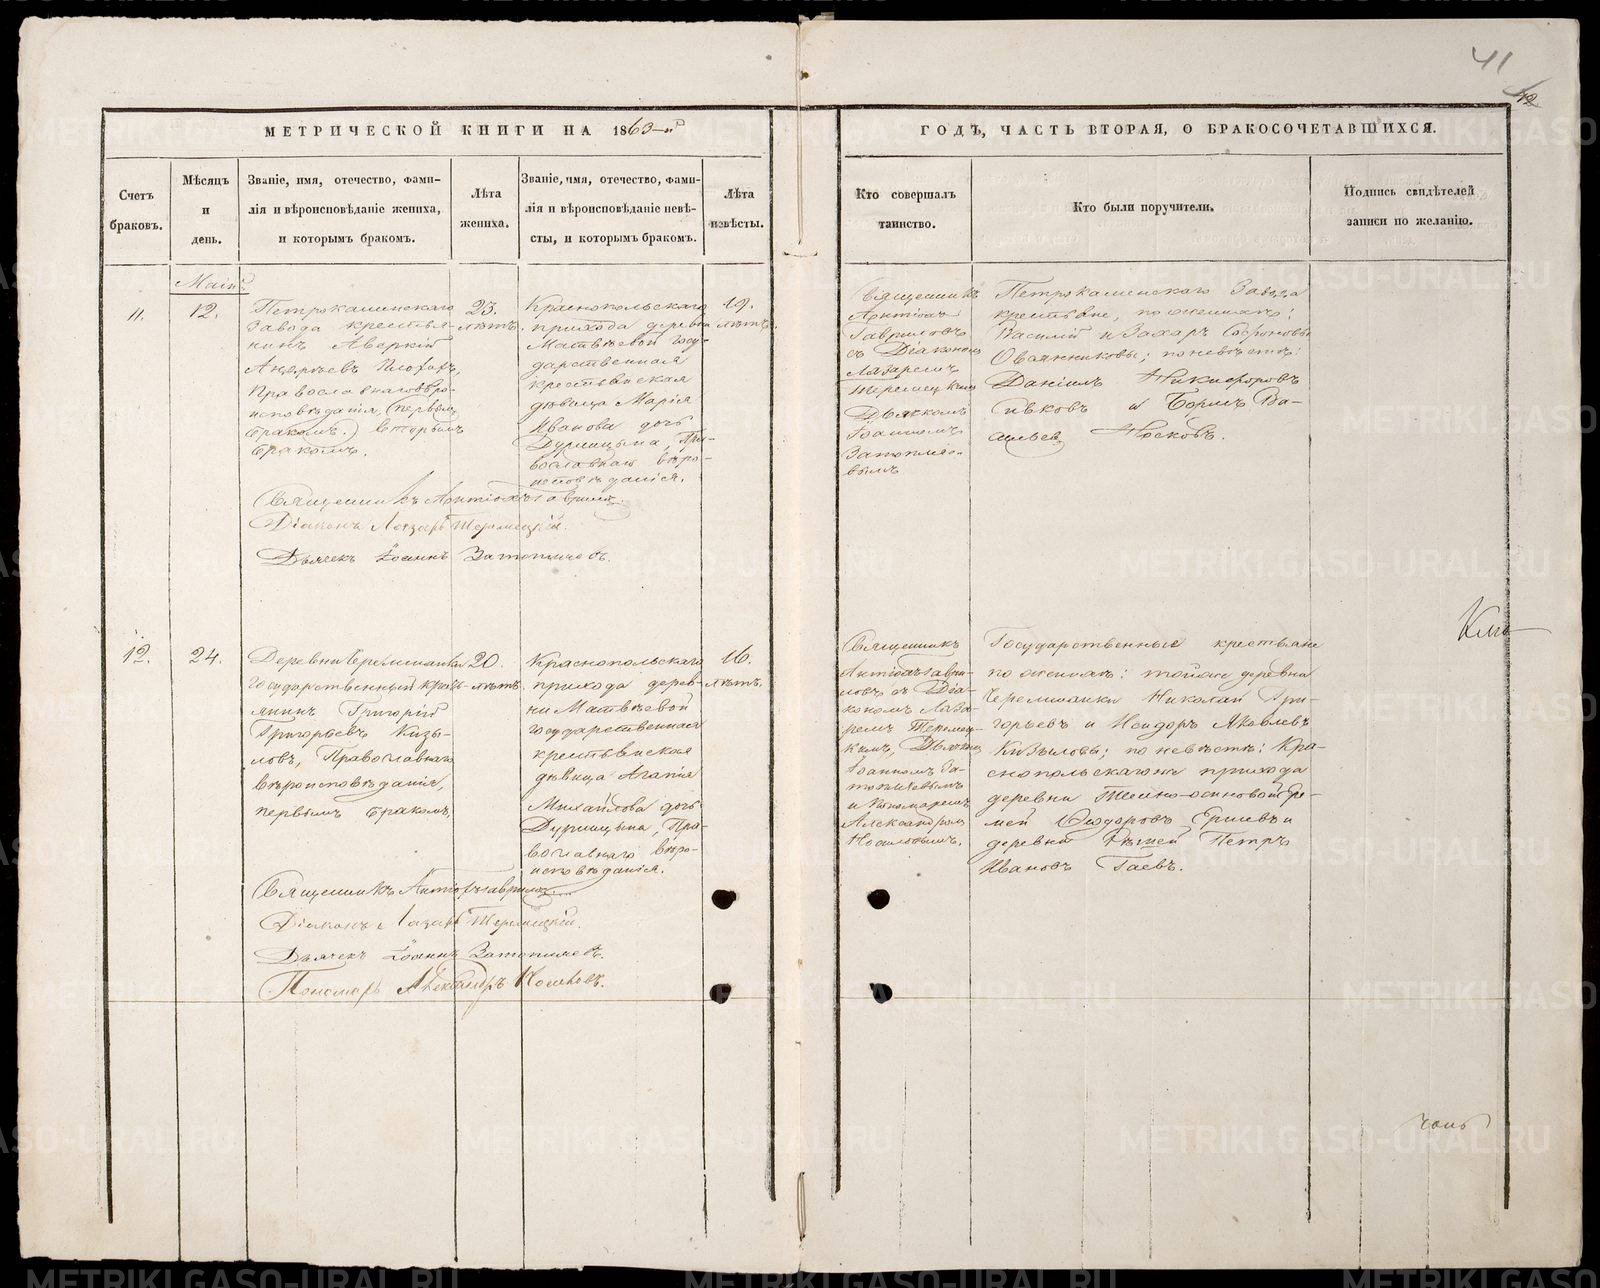 41
42
МЕТРИЧЕСКОЙ КНИГИ НА 1863-й
ГОДЪ, ЧАСТЬ ВТОРАЯ, О БРАКОСОЧЕТАВШИХСЯ.
Счетъ
браковъ.
Мѣсяцъ
и
день.
Званіе, имя, отечество, фами-
лія и вѣроисповѣданіе жениха,
и которымъ бракомъ.
Лѣта
жениха.
Званіе, имя, отечество, фами-
лія и вѣроисповѣданіе невѣ-
сты, и которымъ бракомъ.
Лѣта
невѣсты.
Кто совершалъ
таинство.
Кто были поручители.
Подпись свидѣтелей
записи по желанію.
11.
12.
Петрокаменскаго
Завода крестья-
нинъ Аверкій
Андреевъ
Православнаго вѣро-
исповѣданія, (первымъ
бракомъ.) вторымъ
бракомъ.
23.
лѣтъ.
Краснопольскаго
прихода деревни
Матвѣевой госу-
дарственная
крестьянская
дѣвица Марія
Иванова дочь
Дурницына, Пра-
вославнаго вѣро-
исповѣданія.
19.
лѣтъ.
Священникъ
Антіохъ
Гавриловъ
съ Діакономъ
Лазаремъ
Дьячкомъ
Іоанномъ
Затопляе-
вымъ
Петрокаменскаго Завода
крестьяне, по женихѣ:
Василій и Захаръ Софроновы
Овчинниковы; по невѣстѣ:
Даніилъ Никифоровъ
Сивковъ и Борисъ Ва-
сильевъ Носковъ.
Священникъ Антіохъ Гавриловъ.
Діаконъ Лазарь
Дьячекъ Іоаннъ Затопляевъ.
12.
24.
Деревни Черемшанки
государственный кресть-
янинъ Григорій
Григорьевъ Кизы-
ловъ, Православнаго
вѣроисповѣданія,
первымъ бракомъ.
20.
лѣтъ.
Краснопольскаго
прихода дерев-
ни Матвѣевой
государственная
крестьянская
дѣвица Агапія
Михайлова дочь
Дурницына, Пра-
вославнаго вѣро-
исповѣданія.
16.
лѣтъ.
Священникъ
Антіохъ Гаври-
ловъ съ Діа-
кономъ Лаза-
ремъ
кимъ, Дьячкомъ
Іоанномъ За-
топляевымъ
и Пономаремъ
Александромъ
Государственные крестьяне
по женихѣ: тойже деревни
Черемшанки Николай Гри-
горьевъ и Исидоръ Яковлевъ
Кизыловы; по невѣстѣ: Кра-
снопольскагоже прихода
деревни Темно-осиновой Ере-
мей Ѳеодоровъ и
деревни Петръ
Ивановъ Гаевъ.
Священникъ Антіохъ Гавриловъ.
Діаконъ Лазарь
Дьячекъ Іоаннъ Затопляевъ.
Пономарь Александръ
METRIKI.GASO-URAL.RU